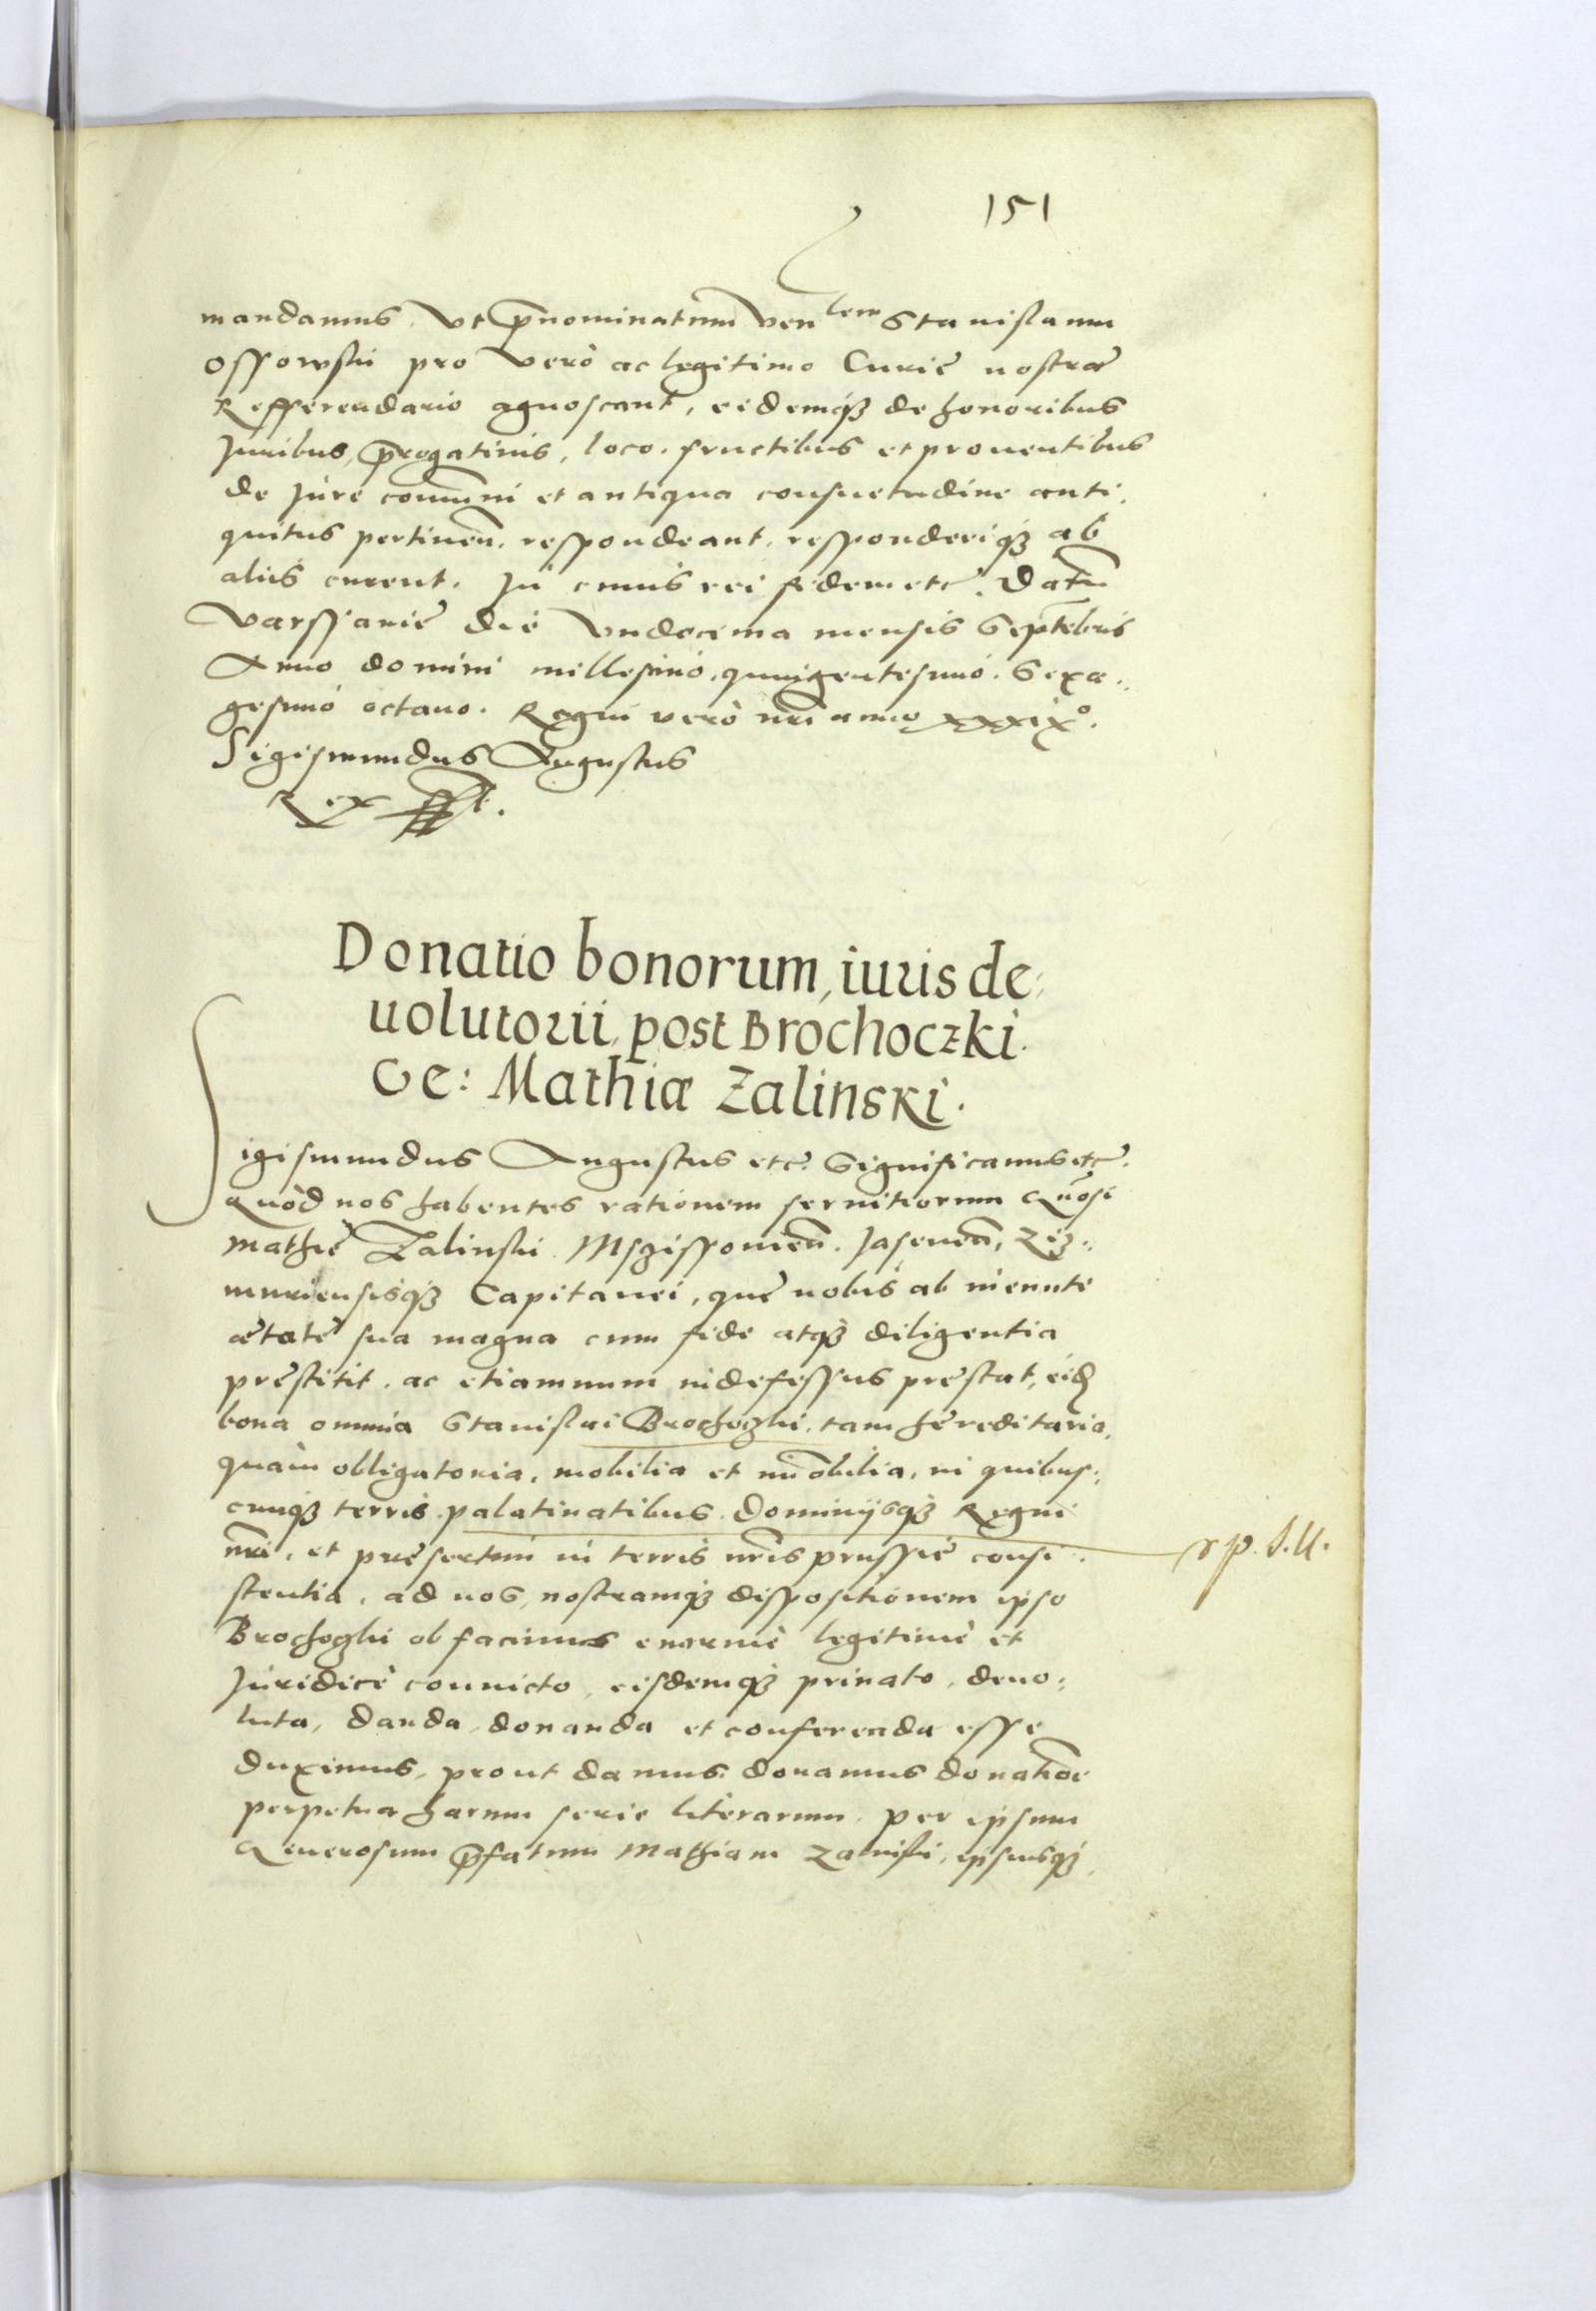 151
mandamus, vt p̄nominatum ven lem Stanislaum
Ossowski pro vero ac legitimo Curie nostræ
Refferendario agnoscant, eidemq₃ de honoribus
Juribus, p̄rogatiuis, loco, fructibus et prouentibus
de Jure com̄uni et antiqua consuetudine anti,
quitus pertineñ. respondeant, responderiq₃ ab
alijs curent. In cuius rei fidem etc. Datu̅
Varssauie die Vndecima mensis Septe̅bris
Anno domini millesimo, quingentesimo, Sexa,,
gesimo octauo. Regni vero nr̄i anno xxxixº.
Sigismundus Augustus
Rex sst.
Donatio bonorum, iuris de,
uolutorii, post Brochoczki.
Ge: Mathiæ Zalinski.
Sigismundus Augustus etc. Significamus etc.
Quòd nos habentes rationem seruitiorum Gn̄osi
Mathie Zalinski Msczissouieñ. Jaseneñ, Ziz,,
muriensisq₃ Capitanei, que nobis ab ineunte
ætate sua magna cum fide atq₃ diligentia
prestitit, ac etiamnum indefessus prestat, eid
bona omnia Stanislai Brochozki, tam hereditaria,
quàm obligatoria, mobilia et im̄obilia, in quibus,,
cunq₃ terris palatinatibus Dominijsq₃ Regni
nr̄i, et presertim in terris nr̄is prussie consi,,
stentia, ad nos, nostramq₃ dispositionem ipso
Brochozki ob facinus enorme legitime et
Juridicè conuicto, eisdemq₃ priuato, deuo,,
luta, danda, donanda et conferenda esse
duximus, prout damus donamus donatio̅e
perpetua harum serie literarum, per ipsum
Generosum p̄fatum Mathiam Zalinski, ipsiusq₃